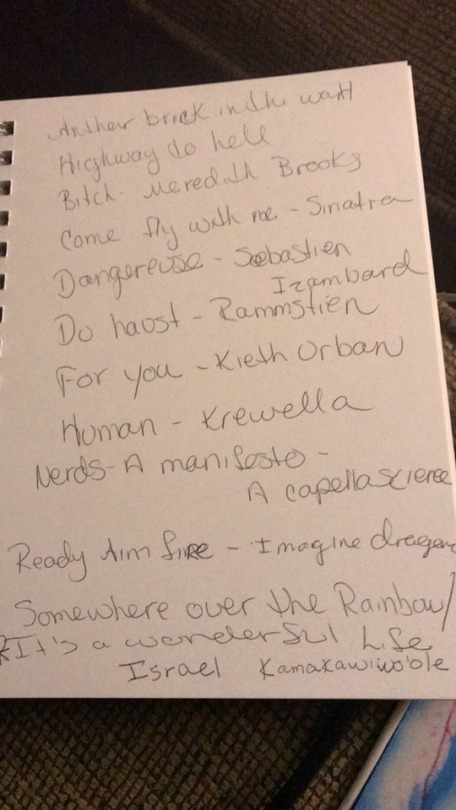 Anther brick in the wall
Highway to hell
Bitch - Meredith Brooks
Come fly with me - Sinatra
Dangereuse - Sebastien
Izambard
Du haust - Rammstien
For you - Kieth Urban
Human - Krewella
Nerds - A manifesto -
A capellascience
Ready Aim fire - Imagine dragons
Somewhere over the Rainbow/
It's a wonderful Life
Israel Kamakawiwo'ole